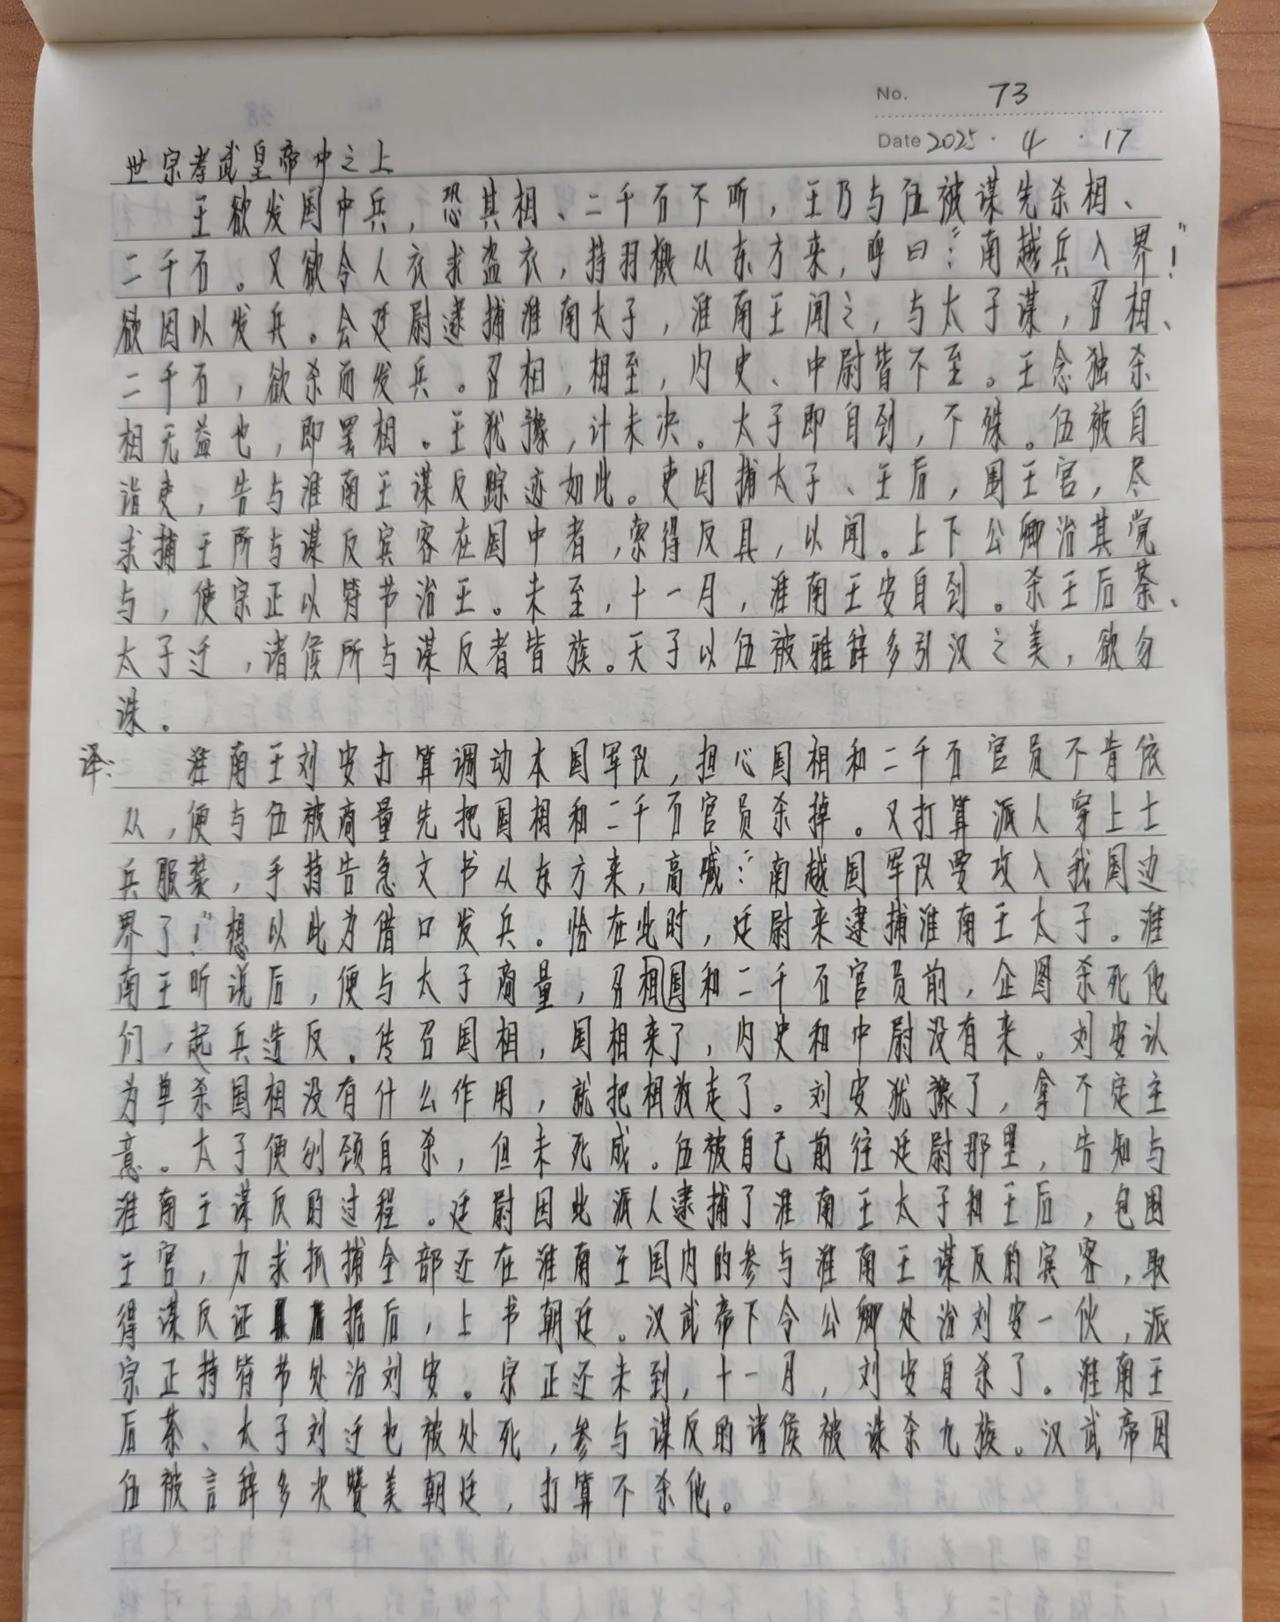 No. 73
Date 2025 · 4 · 17
世宗孝武皇帝中之上
王欲发国中兵，恐其相、二千石不听，王乃与伍被谋先杀相、
二千石。又欲令人衣求盗衣，持羽檄从东方来，呼曰：“南越兵入界！”
欲因以发兵。会廷尉逮捕淮南太子，淮南王闻之，与太子谋，召相、
二千石，欲杀而发兵。召相，相至，内史、中尉皆不至。王念独杀
相无益也，即罢相。王犹豫，计未决。太子即自刭，不殊。伍被自
诣吏，告与淮南王谋反踪迹如此。吏因捕太子、王后，围王宫，尽
求捕王所与谋反宾客在国中者，索得反具，以闻。上下公卿治其党
与，使宗正以符节治王。未至，十一月，淮南王安自刭。杀王后荼、
太子迁，诸侯所与谋反者皆族。天子以伍被雅辞多引汉之美，欲勿
诛。
译：淮南王刘安打算调动本国军队，担心国相和二千石官员不肯依
从，便与伍被商量先把国相和二千石官员杀掉。又打算派人穿上士
兵服装，手持告急文书从东方来，高喊：“南越国军队要攻入我国边
界了！”想以此为借口发兵。恰在此时，廷尉来逮捕淮南王太子。淮
南王听说后，便与太子商量，召相国和二千石官员前，企图杀死他
们，起兵造反。传召国相，国相来了，内史和中尉没有来。刘安认
为单杀国相没有什么作用，就把相放走了。刘安犹豫了，拿不定主
意。太子便刎颈自杀，但未死成。伍被自己前往廷尉那里，告知与
淮南王谋反的过程。廷尉因此派人逮捕了淮南王太子和王后，包围
王宫，力求抓捕全部还在淮南王国内的参与淮南王谋反的宾客，取
得谋反证据后，上书朝廷。汉武帝下令公卿处治刘安一伙，派
宗正持符节处治刘安。宗正还未到，十一月，刘安自杀了。淮南王
后荼、太子刘迁也被处死，参与谋反的诸侯被诛杀九族。汉武帝因
伍被言辞多次赞美朝廷，打算不杀他。